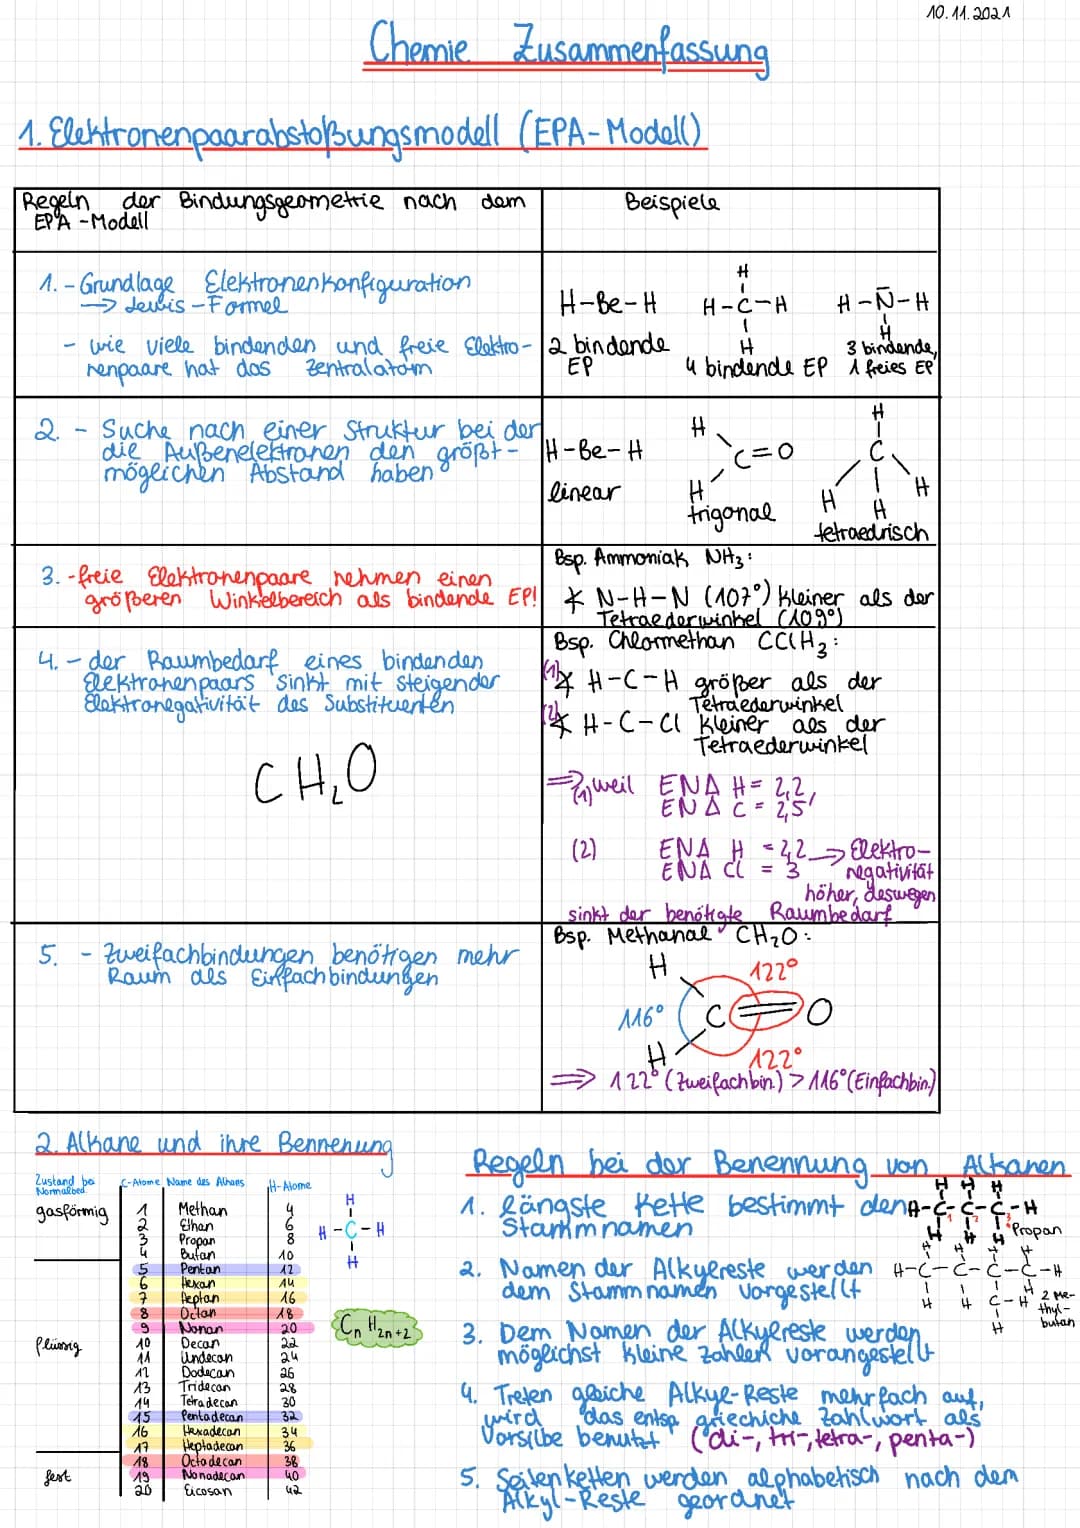 10.11.2021
Chemie Zusammenfassung
1. Elektronenpaarabstoßungsmodell (EPA-Modell)
Regeln der Bindungsgeometrie nach dem
EPA-Modell
Beispiele
1. - Grundlage Elektronenkonfiguration
→ Lewis-Formel
- wie viele bindenden und freie Elektro-
nenpaare hat das Zentralatom
H-Be-H
2 bindende
EP
H
H-C-H
H
4 bindende EP
H-N̄-H
H
3 bindende,
1 freies EP
2. - Suche nach einer Struktur bei der
die Außenelektronen den größt-
möglichen Abstand haben
H-Be-H
linear
H
C=O
H
trigonal
H
C
H H H
tetraedrisch
3. -freie Elektronenpaare nehmen einen
größeren Winkelbereich als bindende EP!
Bsp. Ammoniak NH₃:
∡ N-H-N (107°) kleiner als der
Tetraederwinkel (109°)
4. - der Raumbedarf eines bindenden
Elektronenpaars sinkt mit steigender
Elektronegativität des Substituenten
CH₂O
Bsp. Chlormethan CClH₃:
(1) ∡ H-C-H größer als der
Tetraederwinkel
(2) ∡ H-C-Cl kleiner als der
Tetraederwinkel
⇒ (1) weil ENΔ H = 2,2,
ENΔ C = 2,5
(2) ENΔ H = 2,2 → Elektro-
ENΔ Cl = 3 negativität
höher, deswegen
sinkt der benötigte Raumbedarf
5. - Zweifachbindungen benötigen mehr
Raum als Einfachbindungen
Bsp. Methanal CH₂O:
H 122°
116° C=O
H 122°
⇒ 122° (Zweifachbin.) > 116° (Einfachbin.)
2. Alkane und ihre Bennenung
Zustand bei
Normalbed.
C-Atome Name des Alkans H-Atome
gasförmig
1 Methan 4
2 Ethan 6
3 Propan 8
4 Butan 10
5 Pentan 12
6 Hexan 14
7 Heptan 16
8 Octan 18
9 Nonan 20
flüssig
10 Decan 22
11 Undecan 24
12 Dodecan 26
13 Tridecan 28
14 Tetradecan 30
15 Pentadecan 32
16 Hexadecan 34
17 Heptadecan 36
fest
18 Octodecan 38
19 Nonadecan 40
20 Eicosan 42
H
H-C-H
H
CₙH₂ₙ₊₂
Regeln bei der Benennung von Alkanen
1. längste Kette bestimmt den
Stammnamen
H H H
H-C-C-C-H
1 2 3
H H H
Propan
2. Namen der Alkylreste werden
dem Stammnamen vorgestellt
H H H H
H-C-C-C-C-H
H H C-H H
H
2 Me-
thyl-
butan
3. Dem Namen der Alkylreste werden
möglichst kleine Zahlen vorangestellt
4. Treten gleiche Alkyl-Reste mehrfach auf,
wird das entsp. griechiche Zahlwort als
Vorsilbe benutzt (di-, tri-, tetra-, penta-)
5. Seitenketten werden alphabetisch nach dem
Alkyl-Reste geordnet